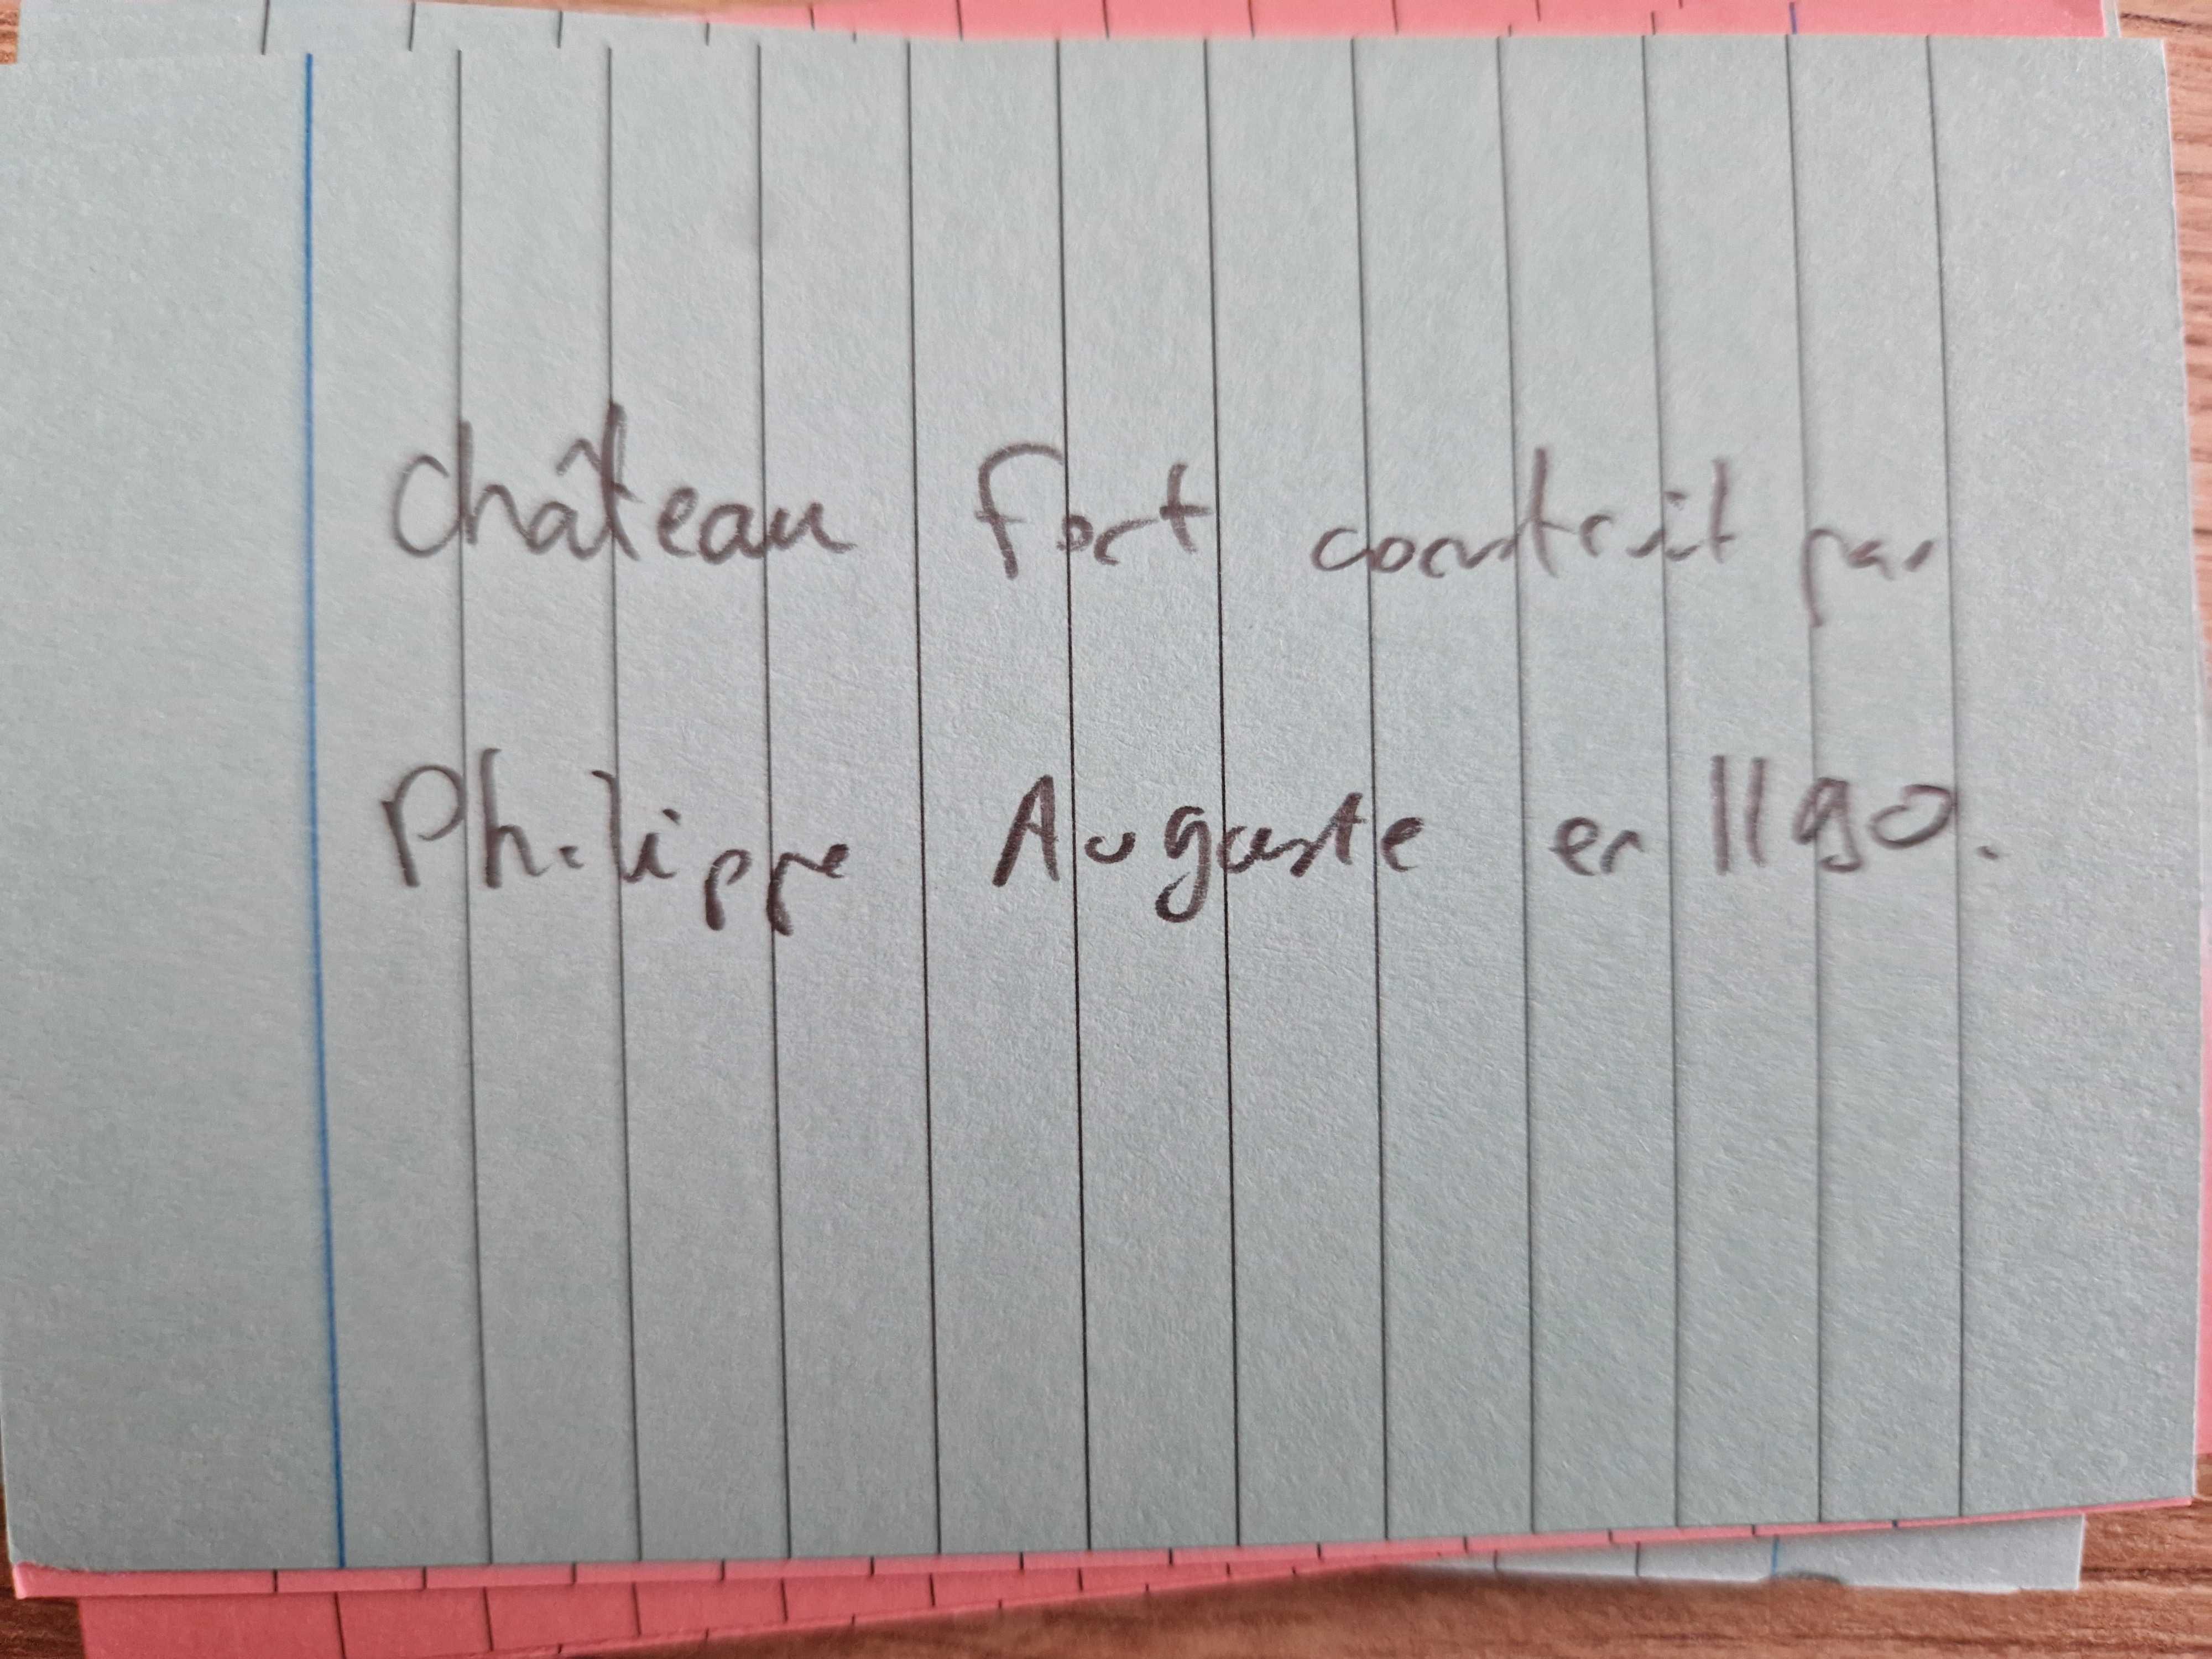 Château fort construit par
Philippe Auguste en 1190.